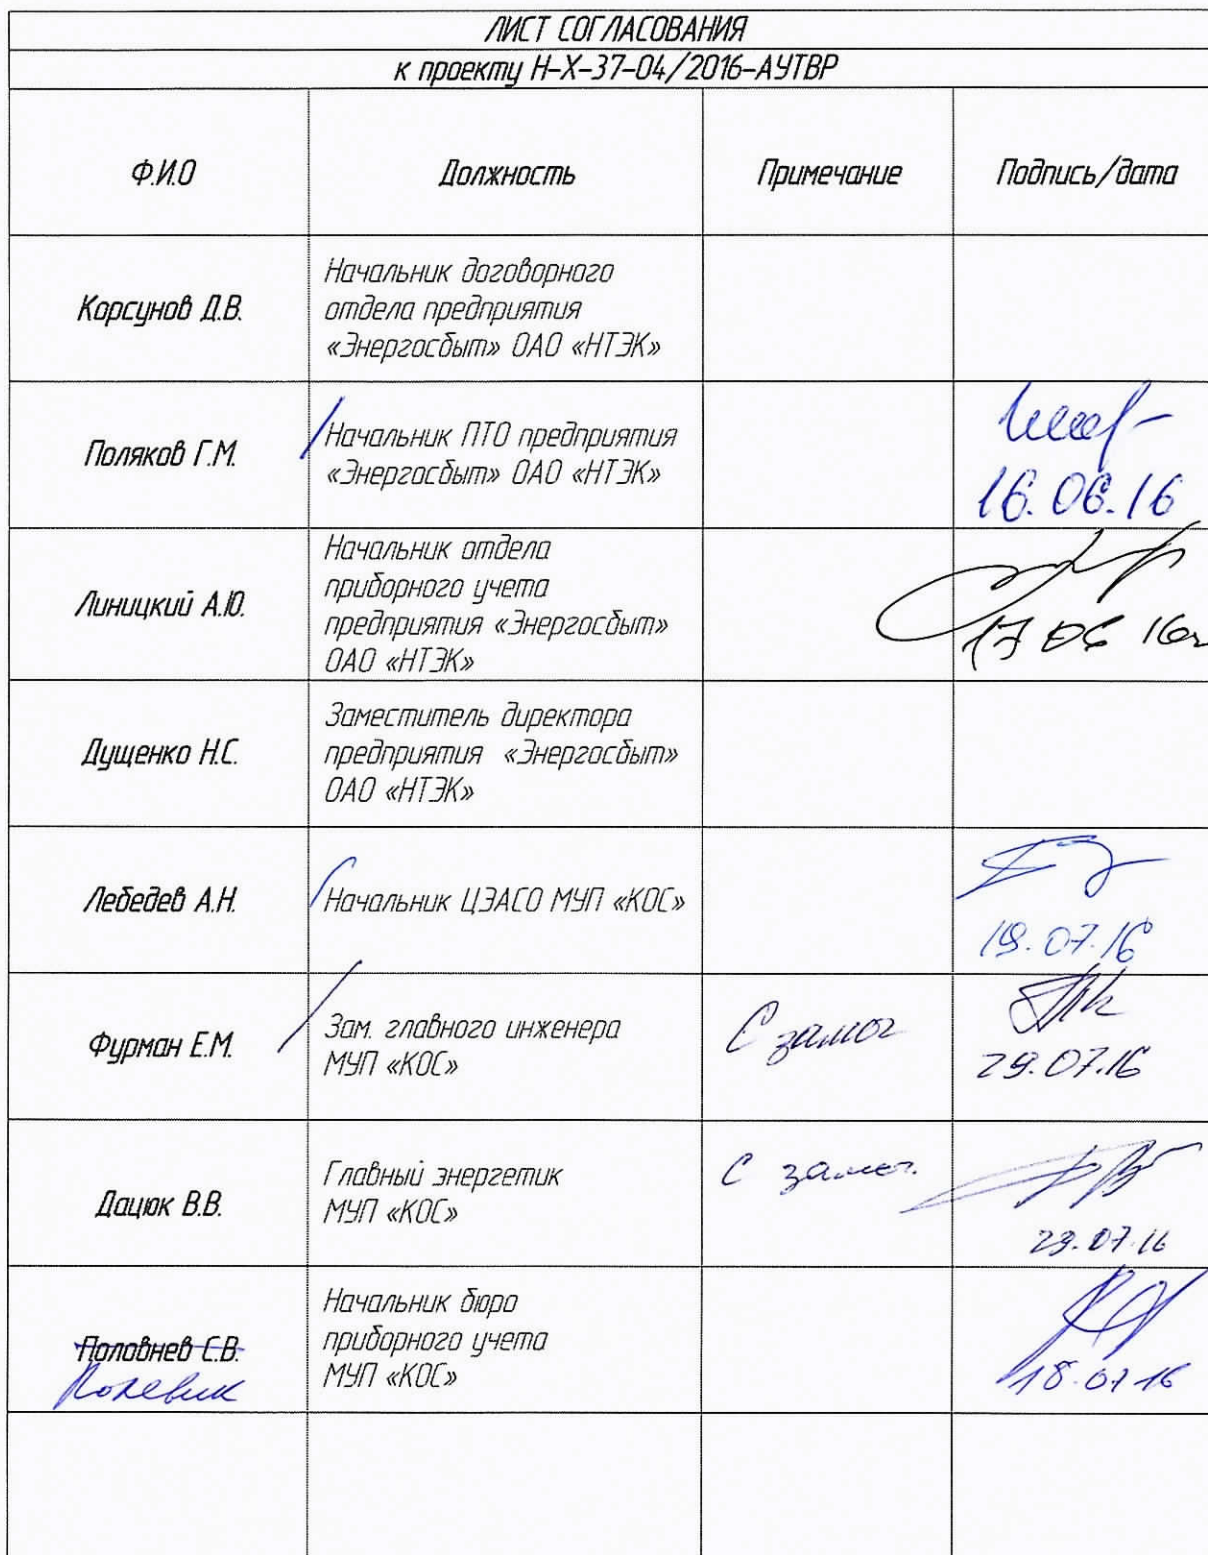 ЛИСТ СОГЛАСОВАНИЯ
к проекту Н-Х-37-04/2016-АУТВР
Ф.И.О
Должность
Примечание
Подпись/дата
Корсунов Д.В.
Начальник договорного
отдела предприятия
«Энергосбыт» ОАО «НТЭК»
Поляков Г.М.
Начальник ПТО предприятия
«Энергосбыт» ОАО «НТЭК»
16.06.16
Линицкий А.Ю.
Начальник отдела
приборного учета
предприятия «Энергосбыт»
ОАО «НТЭК»
17 06 16г
Дущенко Н.С.
Заместитель директора
предприятия «Энергосбыт»
ОАО «НТЭК»
Лебедев А.Н.
Начальник ЦЭАСО МУП «КОС»
19.07.16
Фурман Е.М.
Зам. главного инженера
МУП «КОС»
С замеч
29.07.16
Дацюк В.В.
Главный энергетик
МУП «КОС»
С замеч.
29.07.16
Половнев С.В.
Начальник бюро
приборного учета
МУП «КОС»
18.07.16